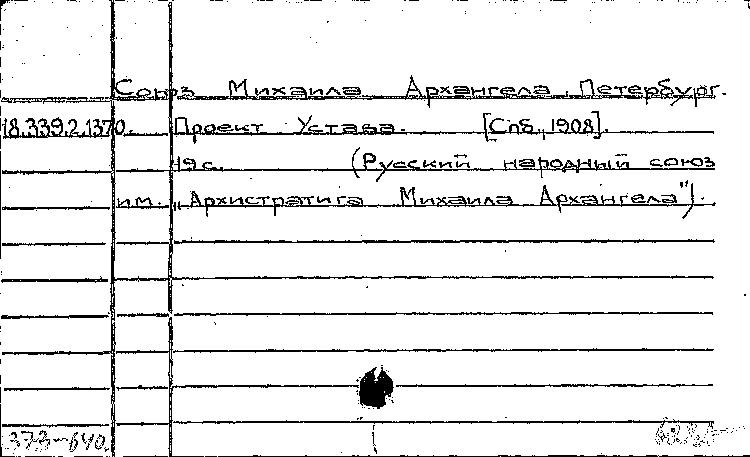 Союз Михаила Архангела. Петербург.
18.339.2.1370. Проект Устава. [Спб., 1908].
19 с. (Русский народный союз
им. „Архистратига Михаила Архангела").
373-640.